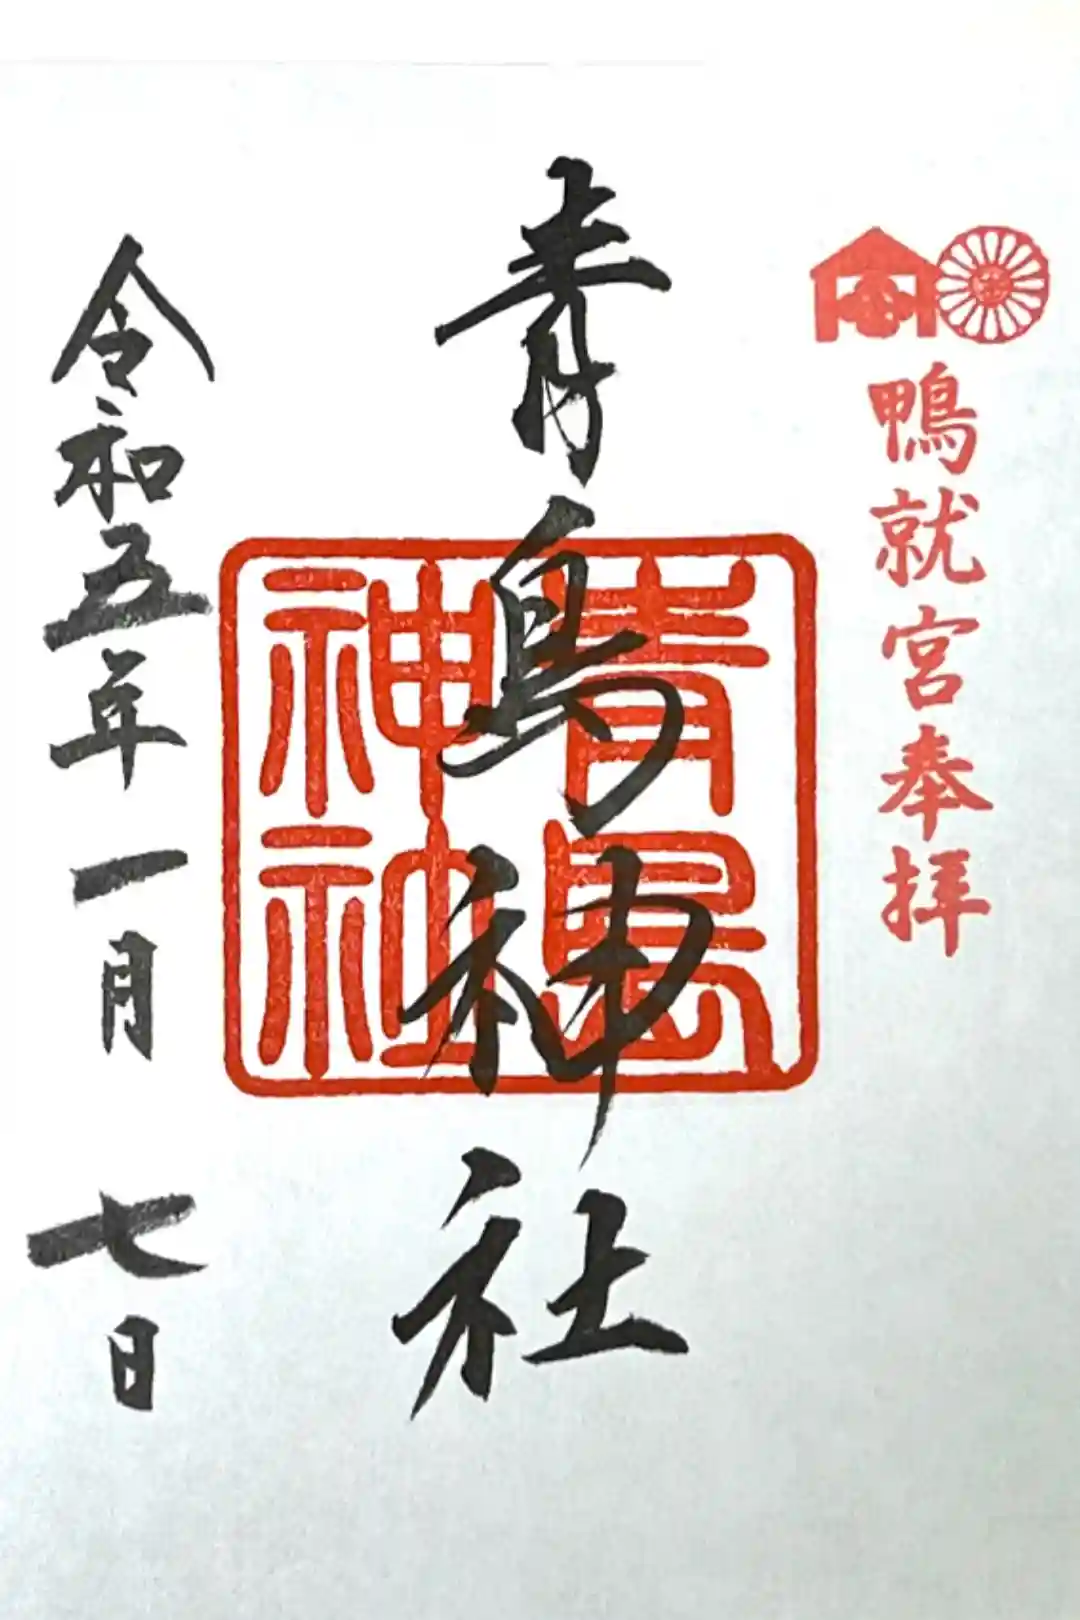 鴨就宮奉拝
青島神社
青島
神社
令和五年一月七日